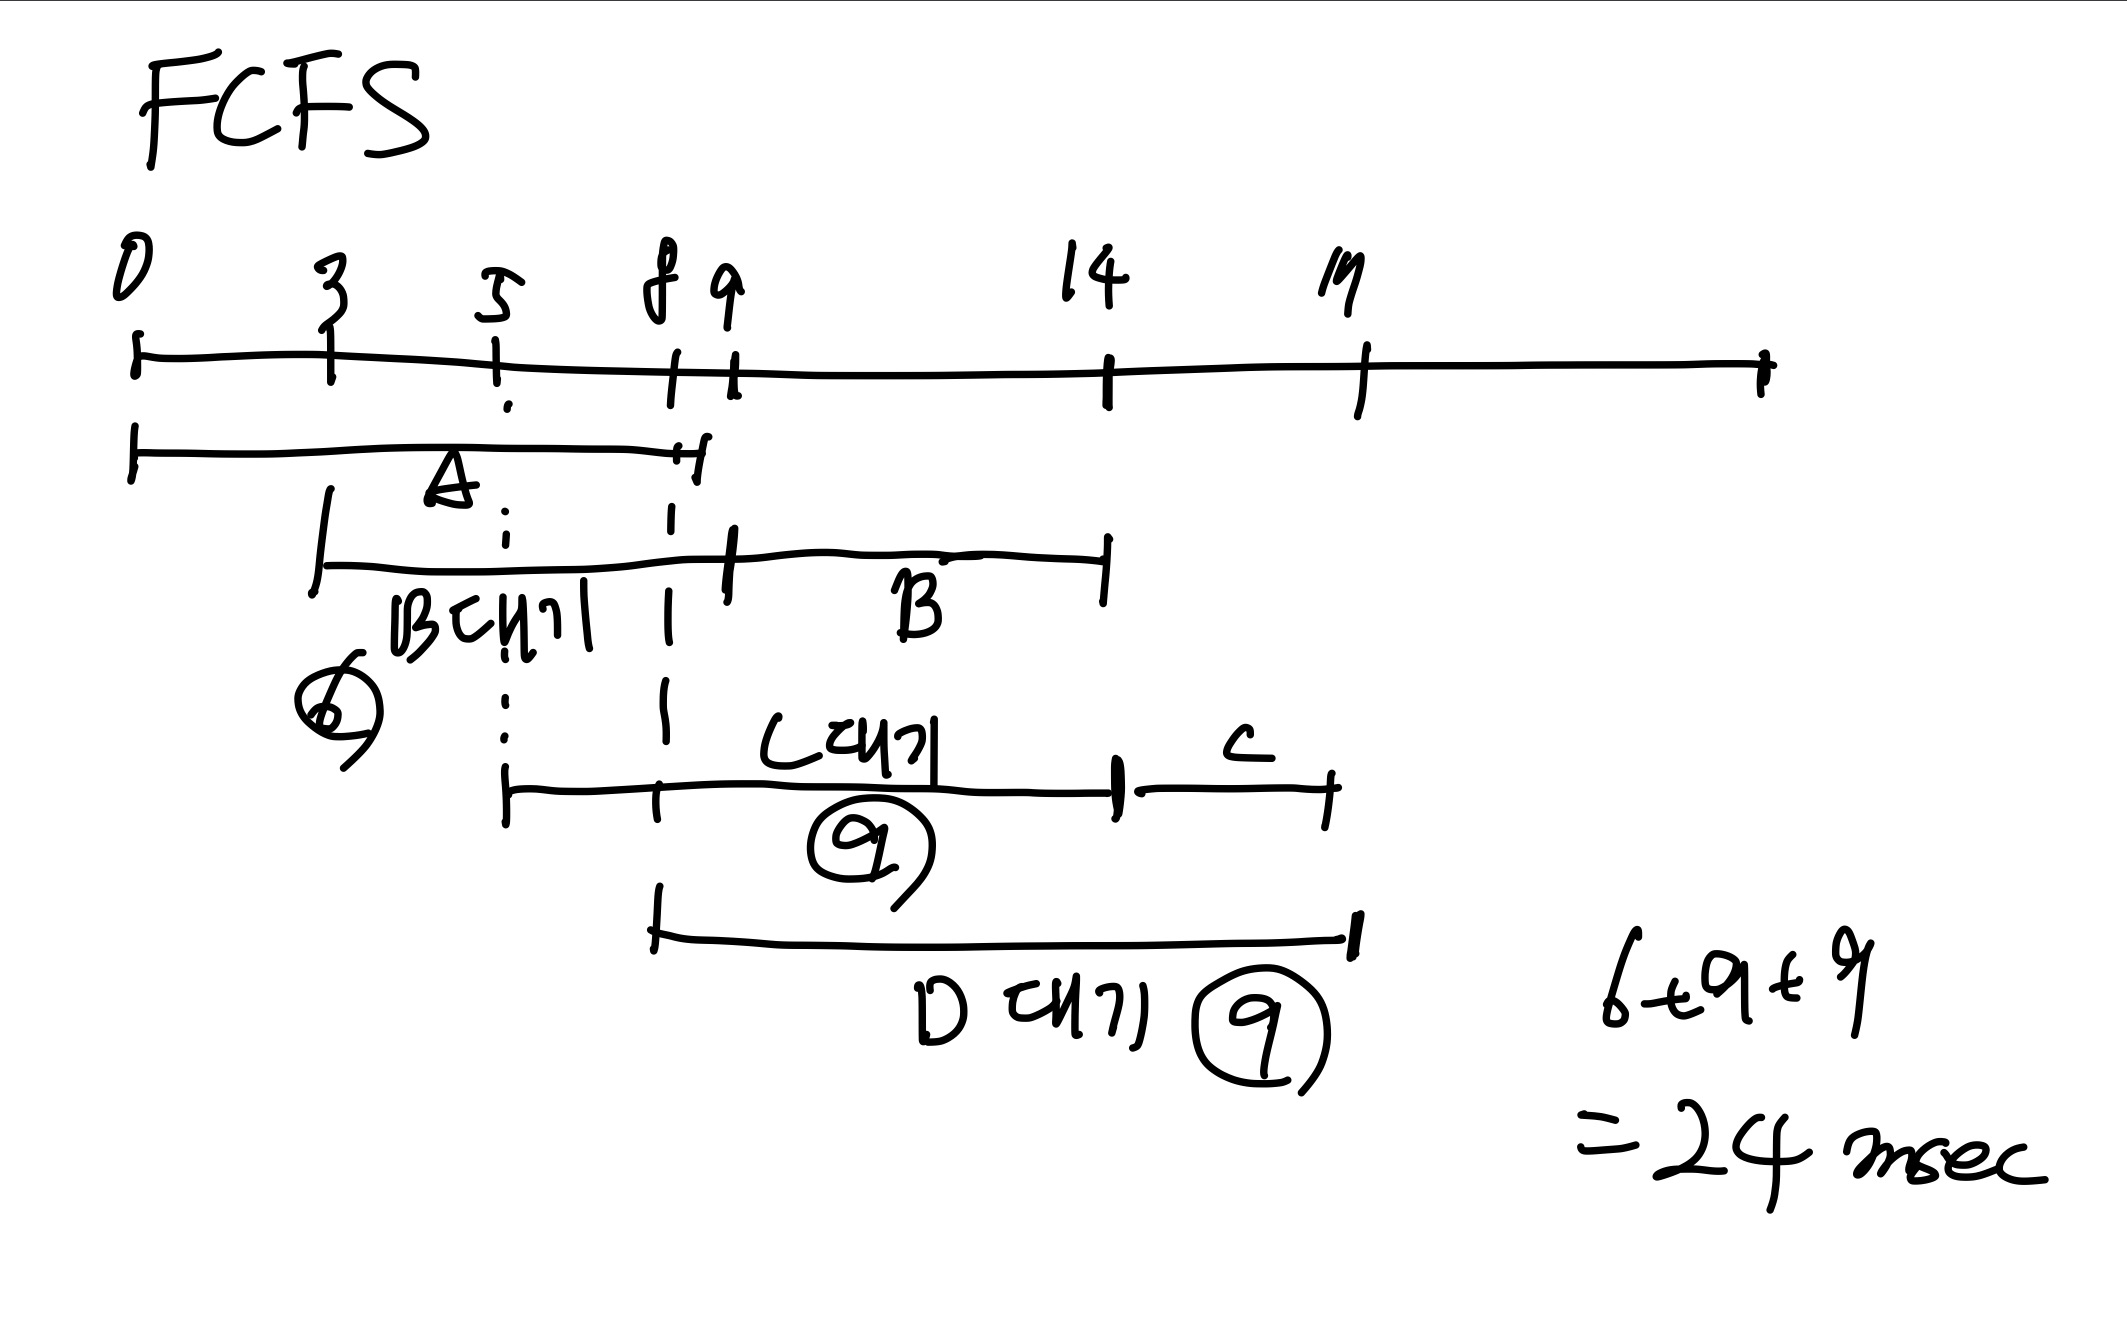 FCFS
0 3 5 8 9 14 17
A
B대기 B
6
C대기 C
9
D 대기 9
6+9+9
=24 msec